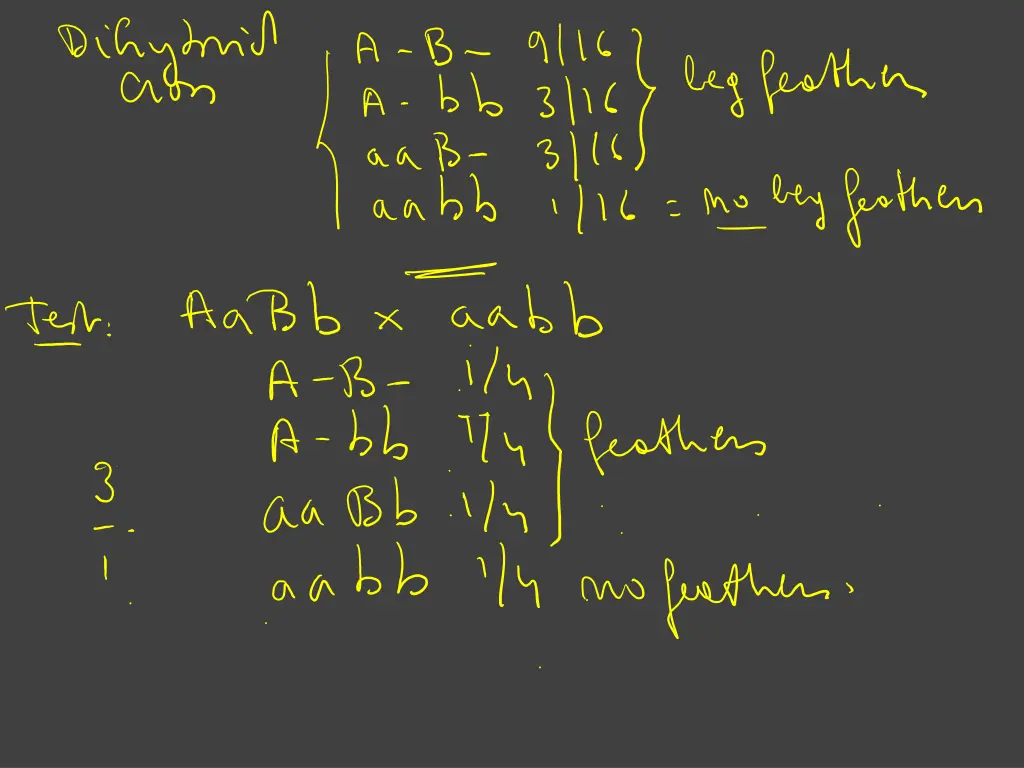 Dihybrid A-B- 9/16
Cross A-bb 3/16 leg feathers
aaB- 3/16
aabb 1/16 = no leg feathers
Test: AaBb x aabb
A-B- 1/4
A-bb 1/4 feathers
3 aaBb 1/4
1 aabb 1/4 no feathers.